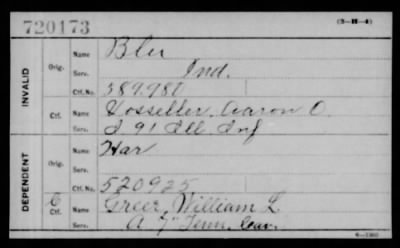 720173
(3-H-4)
INVALID
Orig.
Name
Serv. Ind.
Ctf. No. 389.980
Ctf.
Name Vosseller, Aaron O.
Serv. I 91 Ill. Inf
DEPENDENT
Orig.
Name Har
Serv.
Ctf. No. 520925
C
Ctf.
Name Greer, William L
Serv. A 7" Tenn. Cav.